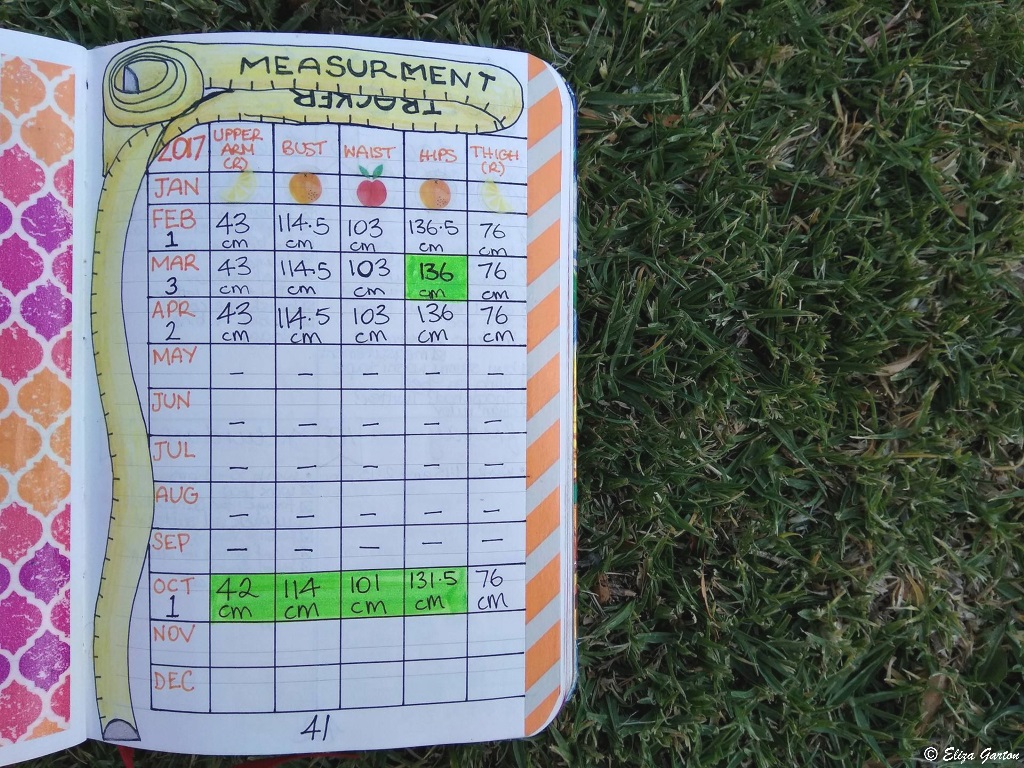 MEASURMENT
TRACKER
2017 UPPER ARM (R) BUST WAIST HIPS THIGH (R)
JAN
FEB 1 43 cm 114.5 cm 103 cm 136.5 cm 76 cm
MAR 3 43 cm 114.5 cm 103 cm 136 cm 76 cm
APR 2 43 cm 114.5 cm 103 cm 136 cm 76 cm
MAY – – – – –
JUN – – – – –
JUL – – – – –
AUG – – – – –
SEP – – – – –
OCT 1 42 cm 114 cm 101 cm 131.5 cm 76 cm
NOV
DEC
41
© Eliza Garton